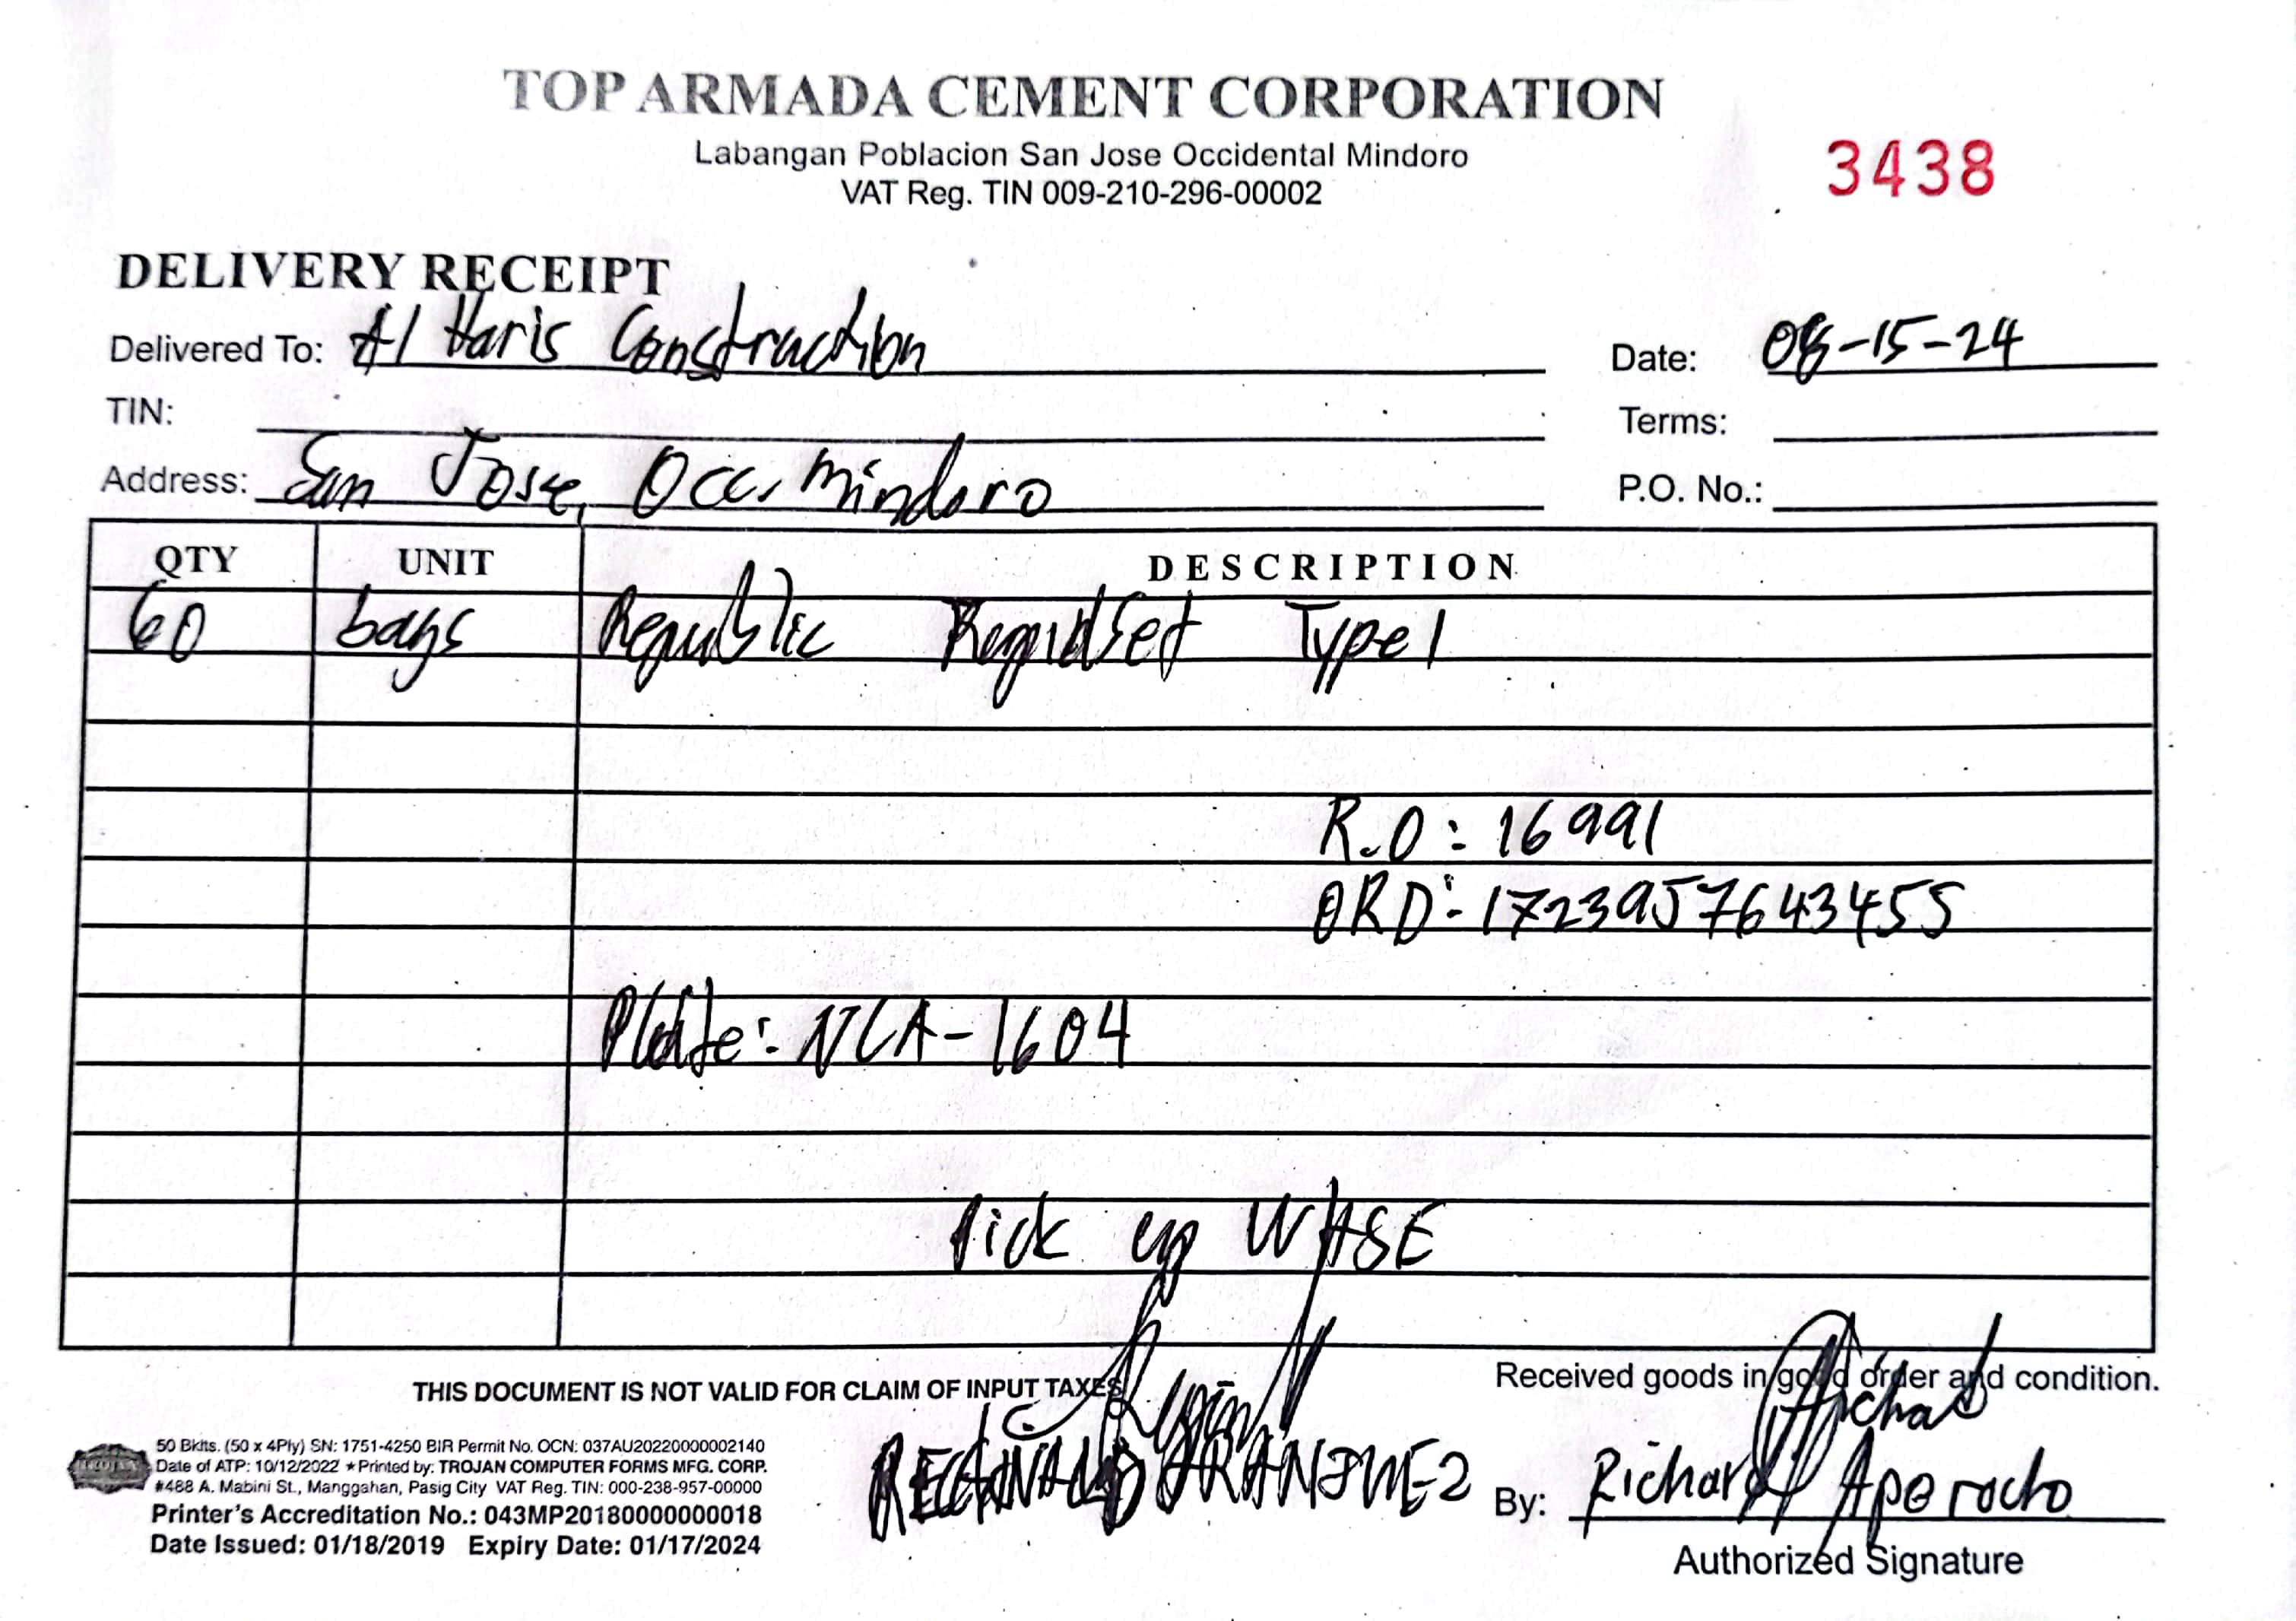 TOP ARMADA CEMENT CORPORATION
Labangan Poblacion San Jose Occidental Mindoro
VAT Reg. TIN 009-210-296-00002
3438
DELIVERY RECEIPT
Delivered To: Al Haris Construction
Date: 08-15-24
TIN:
Terms:
Address: San Jose, Occ. Mindoro
P.O. No.:
QTY UNIT DESCRIPTION
60 bags Republic RapidSet Type 1
R.O: 16991
ORD: 1723957643455
Plate: NCA-1604
Pick up WHSE
THIS DOCUMENT IS NOT VALID FOR CLAIM OF INPUT TAXES
Received goods in good order and condition.
50 Bklts. (50 x 4Ply) SN: 1751-4250 BIR Permit No. OCN: 037AU20220000002140
Date of ATP: 10/12/2022 ★Printed by: TROJAN COMPUTER FORMS MFG. CORP.
#488 A. Mabini St., Manggahan, Pasig City VAT Reg. TIN: 000-238-957-00000
Printer's Accreditation No.: 043MP20180000000018
Date Issued: 01/18/2019 Expiry Date: 01/17/2024
By: Richard
Authorized Signature